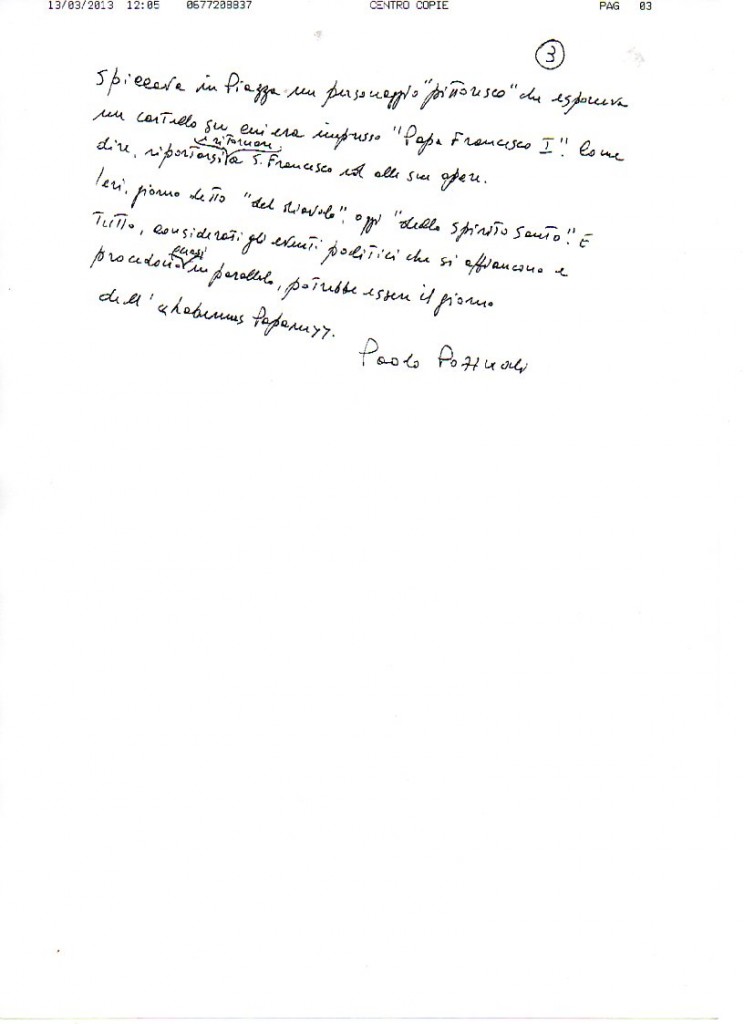 13/03/2013 12:05 0677208837 CENTRO COPIE PAG 03
3
Spiccava in Piazza un personaggio "pittoresco" che esponeva
un cartello su cui era impresso "Papa Francesco I". Come
e ritornare
dire, riportarsi a S. Francesco ed alle sue opere.
Ieri, giorno detto "del diavolo", oggi "dello Spirito Santo". E
tutto, considerati gli eventi politici che si affiancano e
quasi
procedono in parallelo, potrebbe essere il giorno
dell' «habemus Papam».
Paolo